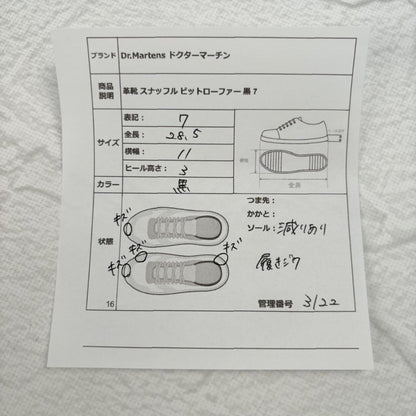 ブランド Dr.Martens ドクターマーチン
商品説明 革靴 スナッフル ビットローファー 黒 7
サイズ
表記： 7
全長： 28.5
横幅： 11
ヒール高さ： 3
全長
カラー 黒
状態
キズ
キズ キズ キズ
つま先：
かかと：
ソール： 減りあり
履きジワ
16
管理番号 3/22